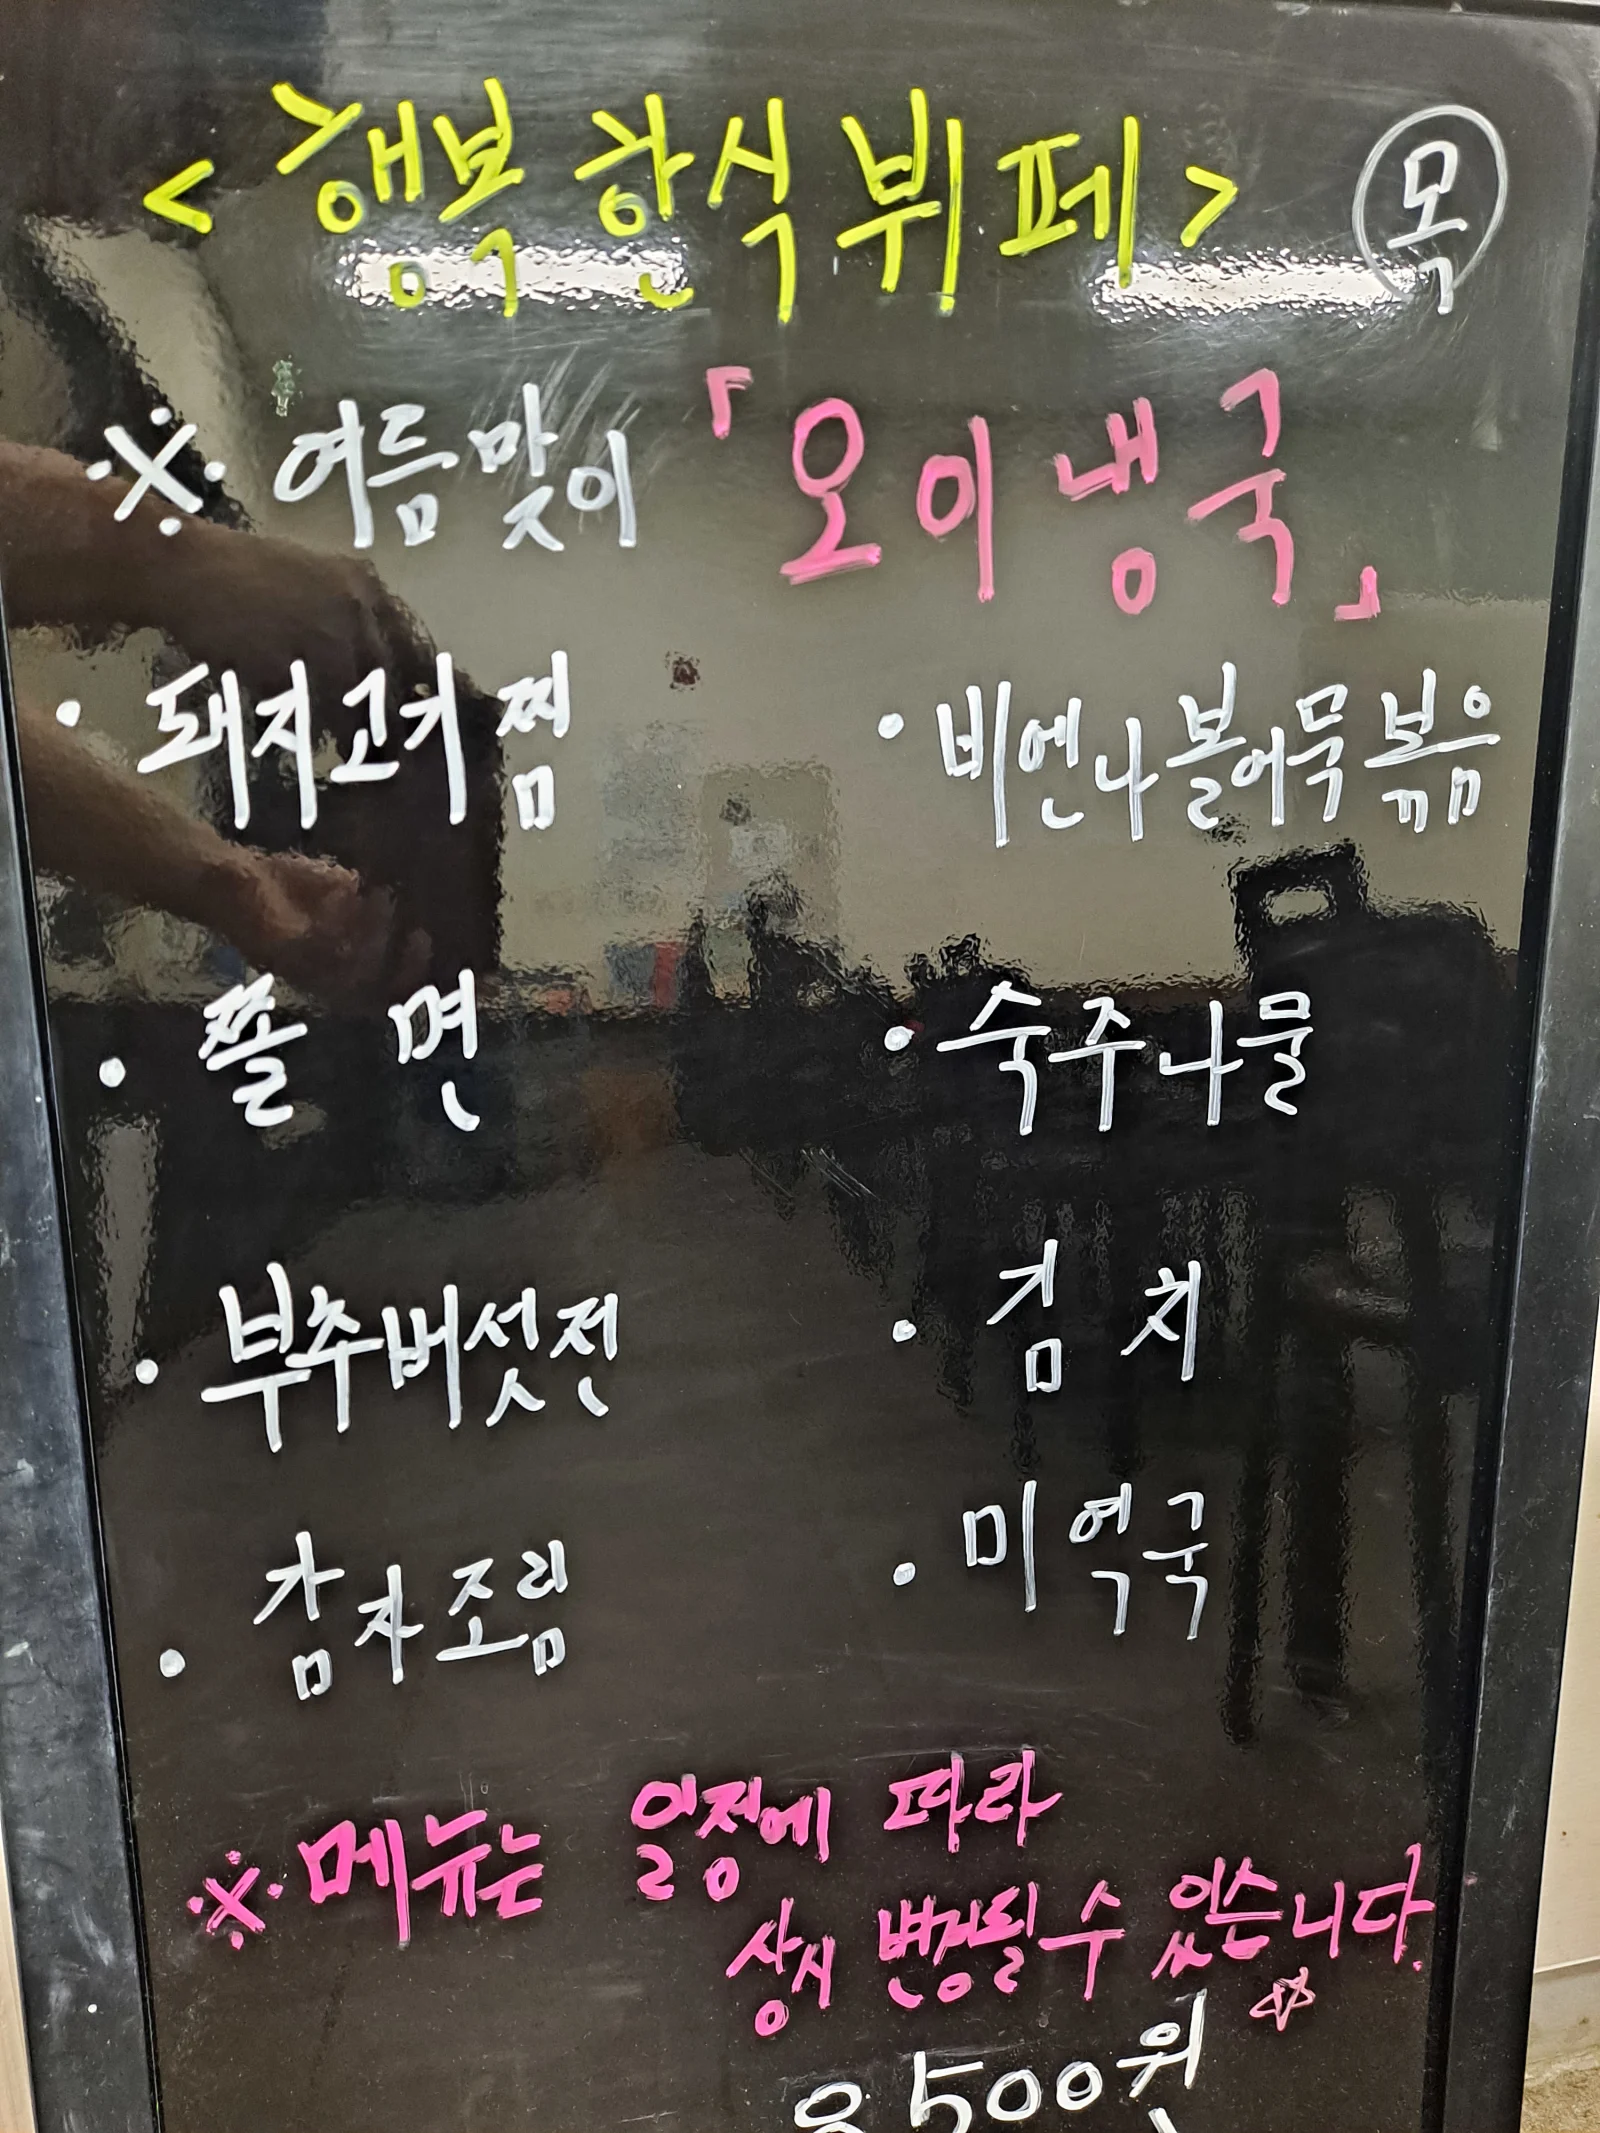 <행복 한식 뷔페> 목
※ 여름맞이 「오이냉국」
· 돼지고기찜
· 비엔나볼어묵볶음
· 쫄면
· 숙주나물
· 부추버섯전
· 김치
· 감자조림
· 미역국
※ 메뉴는 일정에 따라
상시 변경될 수 있습니다.
8,500원